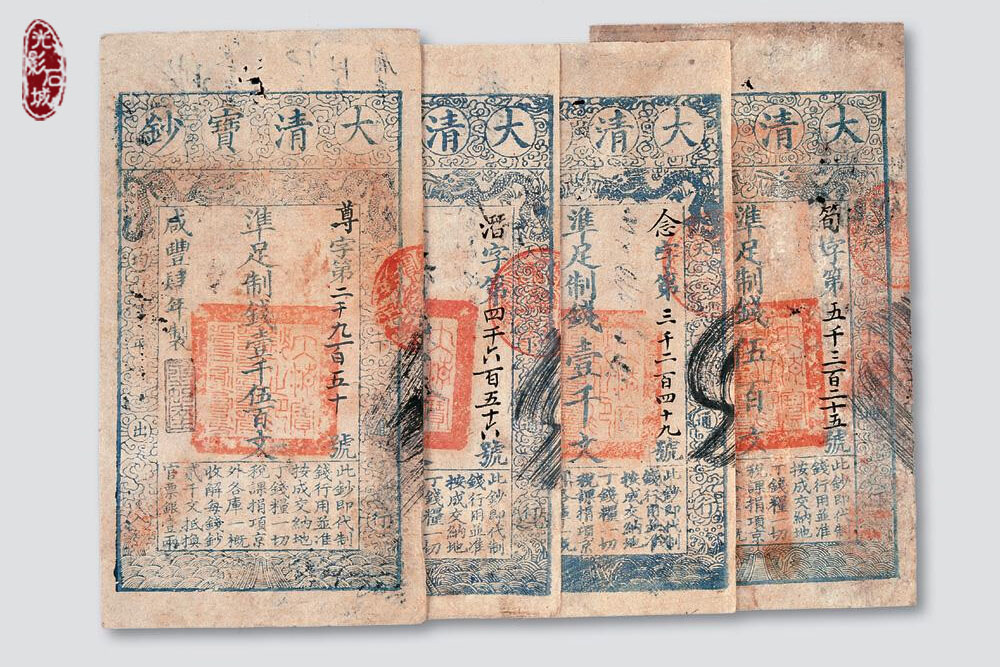 光影石城
大清寶鈔
尊字第二千九百五十號
準足制錢壹千伍百文
咸豐肆年製
此鈔即代制
錢行用並准
按成交納地
丁錢糧一切
稅課捐項京
外各庫一概
收解每錢鈔
貳千文抵換
官票銀壹兩
大清
潛字第四千六百五十六號
此鈔即代制
錢行用並准
按成交納地
丁錢糧一切
大清
念字第三千二百四十九號
準足制錢壹千文
此鈔即代制
錢行用並准
按成交納地
丁錢糧一切
稅課捐項京
大清
荀字第五千三百二十五號
準足制錢伍百文
此鈔即代制
錢行用並准
按成交納地
丁錢糧一切
稅課捐項京